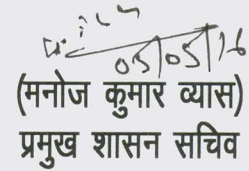 05/05/16
(मनोज कुमार व्यास)
प्रमुख शासन सचिव